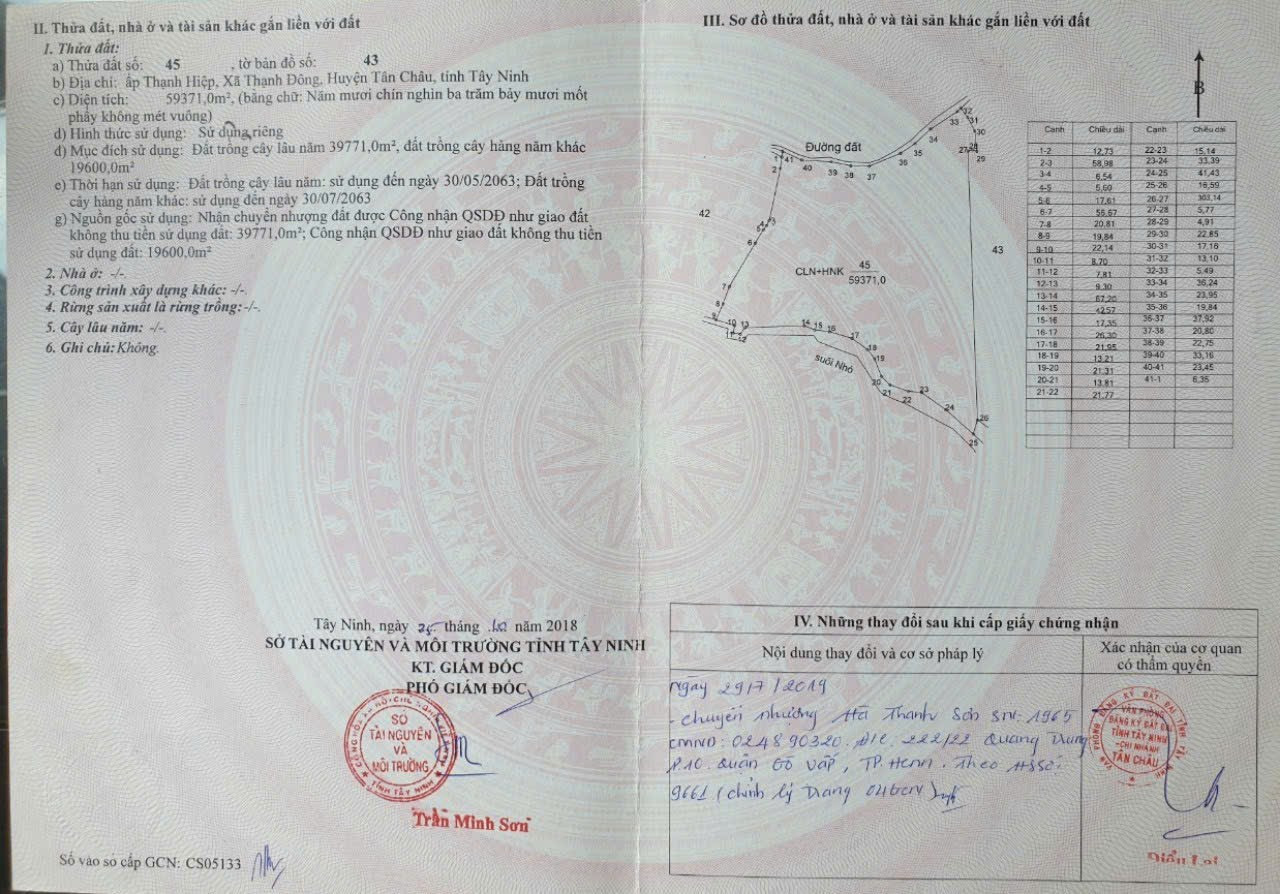 II. Thửa đất, nhà ở và tài sản khác gắn liền với đất
1. Thửa đất:
a) Thửa đất số: 45 , tờ bản đồ số: 43
b) Địa chỉ: ấp Thạnh Hiệp, Xã Thạnh Đông, Huyện Tân Châu, tỉnh Tây Ninh
c) Diện tích: 59371,0m², (bằng chữ: Năm mươi chín nghìn ba trăm bảy mươi mốt
phẩy không mét vuông)
d) Hình thức sử dụng: Sử dụng riêng
đ) Mục đích sử dụng: Đất trồng cây lâu năm 39771,0m², đất trồng cây hàng năm khác
19600,0m²
e) Thời hạn sử dụng: Đất trồng cây lâu năm: sử dụng đến ngày 30/05/2063; Đất trồng
cây hàng năm khác: sử dụng đến ngày 30/07/2063
g) Nguồn gốc sử dụng: Nhận chuyển nhượng đất được Công nhận QSDĐ như giao đất
không thu tiền sử dụng đất: 39771,0m²; Công nhận QSDĐ như giao đất không thu tiền
sử dụng đất: 19600,0m²
2. Nhà ở: -/-.
3. Công trình xây dựng khác: -/-.
4. Rừng sản xuất là rừng trồng: -/-.
5. Cây lâu năm: -/-.
6. Ghi chú: Không.
Tây Ninh, ngày 25 tháng 10 năm 2018
SỞ TÀI NGUYÊN VÀ MÔI TRƯỜNG TỈNH TÂY NINH
KT. GIÁM ĐỐC
PHÓ GIÁM ĐỐC
SỞ
TÀI NGUYÊN
VÀ
MÔI TRƯỜNG
TỈNH TÂY NINH
Trần Minh Sơn
Số vào sổ cấp GCN: CS05133
III. Sơ đồ thửa đất, nhà ở và tài sản khác gắn liền với đất
B
Đường đất
42
43
CLN+HNK 45
59371,0
suối Nhỏ
1 41 40 39 38 37 36 35 34 33 32 31 30 29 28 27
2 3 4 5 6 7 8 9 10 11 12 13 14 15 16 17 18 19 20 21 22 23 24 25 26
Cạnh Chiều dài Cạnh Chiều dài
1-2 12,73 22-23 15,14
2-3 58,98 23-24 33,39
3-4 6,54 24-25 41,43
4-5 5,69 25-26 16,59
5-6 17,61 26-27 303,14
6-7 56,67 27-28 5,77
7-8 20,81 28-29 4,91
8-9 19,84 29-30 22,85
9-10 22,14 30-31 17,18
10-11 8,70 31-32 13,10
11-12 7,81 32-33 5,49
12-13 9,30 33-34 36,24
13-14 67,20 34-35 23,95
14-15 42,57 35-36 19,84
15-16 17,35 36-37 37,92
16-17 26,30 37-38 20,80
17-18 21,95 38-39 22,75
18-19 13,21 39-40 33,16
19-20 21,31 40-41 23,45
20-21 13,81 41-1 6,35
21-22 21,77
IV. Những thay đổi sau khi cấp giấy chứng nhận
Nội dung thay đổi và cơ sở pháp lý
Xác nhận của cơ quan
có thẩm quyền
Ngày 29/7/2019
- chuyển nhượng Hà Thanh Sơn SN: 1965
CMND: 024890320. Đ/c. 222/22 Quang Trung
P.10. Quận Gò Vấp, TP.Hcm. Theo HSSố:
9661 (chỉnh lý trang 04bcn)
VĂN PHÒNG
ĐĂNG KÝ ĐẤT ĐAI
TỈNH TÂY NINH
-CHI NHÁNH
TÂN CHÂU